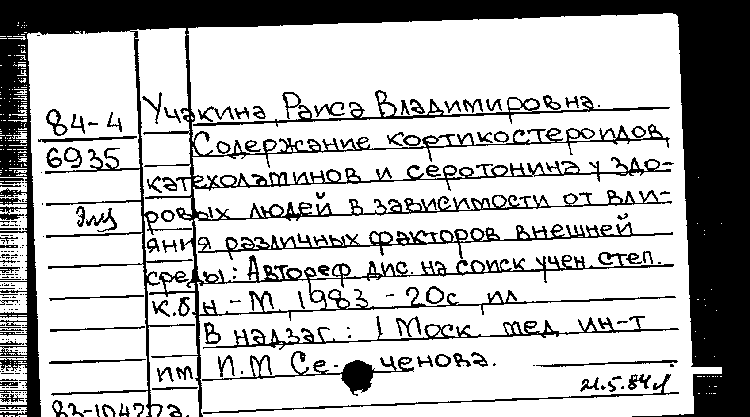 84-4 Учакина, Раиса Владимировна.
6935 Содержание кортикостероидов,
катехоламинов и серотонина у здо-
ровых людей в зависимости от вли-
яния различных факторов внешней
среды: Автореф. дис. на соиск. учен. степ.
к.б.н. - М, 1983. - 20с., ил.
В надзаг.: 1 Моск. мед. ин-т
им. И.М. Се ченова.
21.5.84